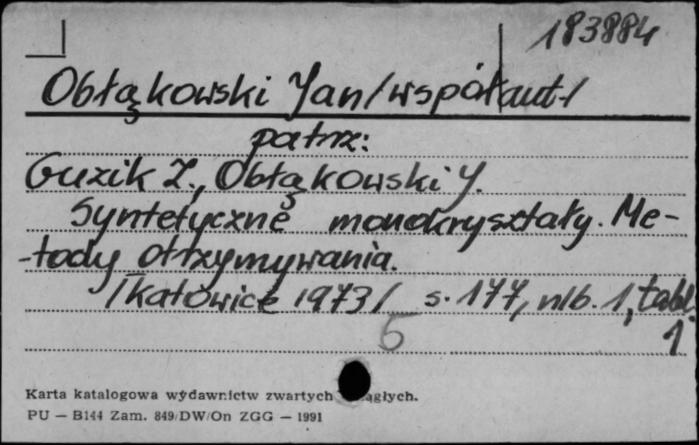 183884
Obłąkowski Jan /współaut./
patrz:
Guzik Z., Obłąkowski J.
Syntetyczne monokryształy. Me-
-tody otrzymywania.
/Katowice 1973/ s. 177, nlb. 1, tabl.
1
5
Karta katalogowa wydawnictw zwartych ągłych.
PU — B144 Zam. 849/DW/On ZGG — 1991